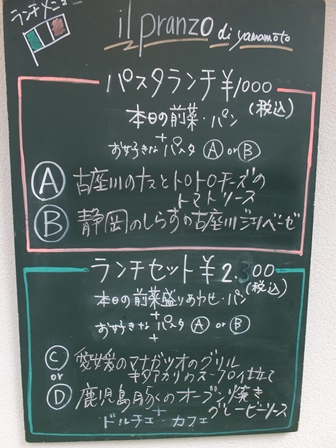 ランチメニュー
il pranzo di yamamoto
パスタランチ ¥1000
(税込)
本日の前菜・パン
+
お好きなパスタ Ⓐ or Ⓑ
Ⓐ 古座川のナスとトロトロチーズの
トマトソース
Ⓑ 静岡のしらすの古座川ジェノベーゼ
ランチセット ¥2.300
(税込)
本日の前菜盛りあわせ・パン
+
お好きなパスタ Ⓐ or Ⓑ
+
Ⓒ 愛媛のマナガツオのグリル
or
Ⓓ 鹿児島豚のオーブン焼き
グレービーソース
+
ドルチェ・カフェ